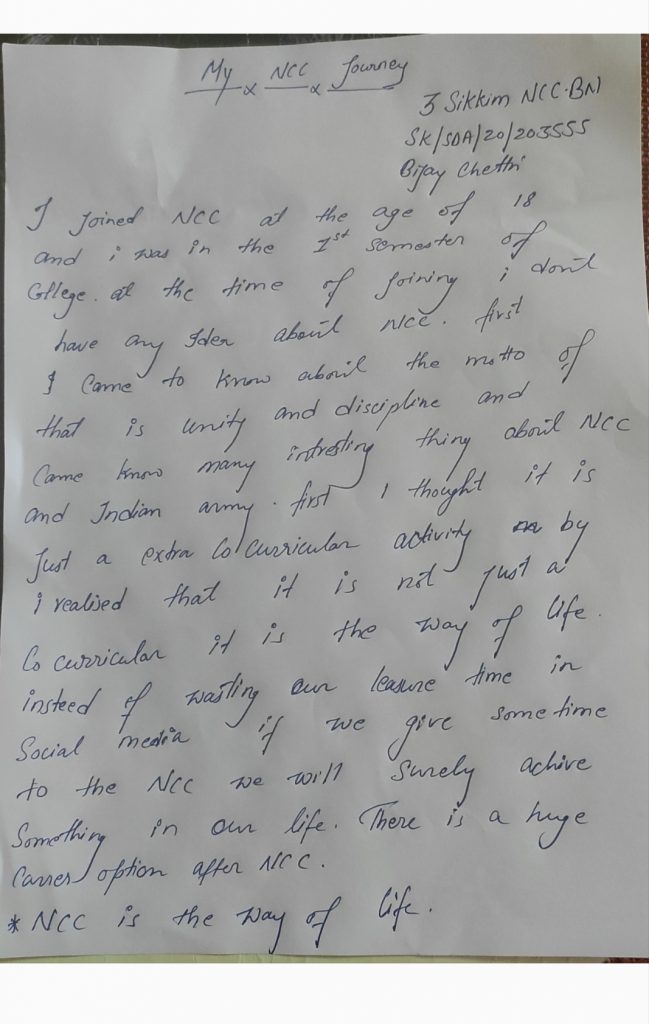 My NCC Journey
3 Sikkim NCC.BN
SK/SDA/20/203555
Bijay Chettri
I joined NCC at the age of 18
and i was in the 1st semester of
College. at the time of joining i don't
have any Idea about NCC. first
I Came to know about the motto of
that is unity and discipline and
Came know many intresting thing about NCC
and Indian army. first I thought it is
Just a extra Co curricular activity by
i realised that it is not just a
Co curricular it is the way of life.
insteed of wasting our leasure time in
Social media if we give some time
to the NCC we will Surely achive
Something in our life. There is a huge
Carrer option after NCC.
* NCC is the way of life.